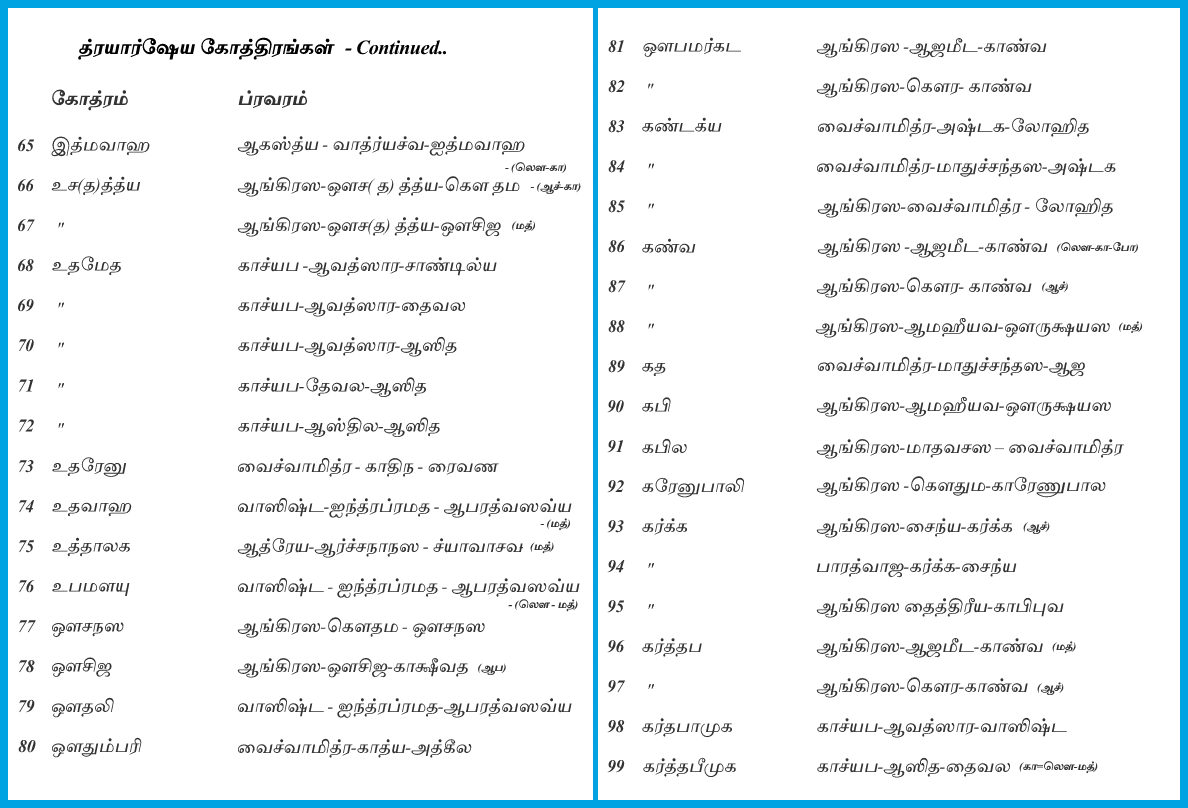 த்ரயார்ஷேய கோத்திரங்கள் - Continued..
கோத்ரம் ப்ரவரம்
65 இத்மவாஹ ஆகஸ்த்ய - வாத்ர்யச்வ-ஐத்மவாஹ
- (லௌ-கா)
66 உச(த)த்த்ய ஆங்கிரஸ-ஔச( த) த்த்ய-கௌ தம - (ஆச்-கா)
67 " ஆங்கிரஸ-ஔச(த) த்த்ய-ஔசிஜ (மத்)
68 உதமேத காச்யப -ஆவத்ஸார-சாண்டில்ய
69 " காச்யப-ஆவத்ஸார-தைவல
70 " காச்யப-ஆவத்ஸார-ஆஸித
71 " காச்யப-தேவல-ஆஸித
72 " காச்யப-ஆஸ்தில-ஆஸித
73 உதரேனு வைச்வாமித்ர - காதிந - ரைவண
74 உதவாஹ வாஸிஷ்ட-ஐந்த்ரப்ரமத - ஆபரத்வஸவ்ய
- (மத்)
75 உத்தாலக ஆத்ரேய-ஆர்ச்சநாநஸ - ச்யாவாசவ (மத்)
76 உபமளயு வாஸிஷ்ட - ஐந்த்ரப்ரமத - ஆபரத்வஸவ்ய
- (லௌ - மத்)
77 ஔசநஸ ஆங்கிரஸ-கௌதம - ஔசநஸ
78 ஔசிஜ ஆங்கிரஸ-ஔசிஜ-காக்ஷீவத (ஆப)
79 ஔதலி வாஸிஷ்ட - ஐந்த்ரப்ரமத-ஆபரத்வஸவ்ய
80 ஔதும்பரி வைச்வாமித்ர-காத்ய-அத்கீல
81 ஔபமர்கட ஆங்கிரஸ -ஆஜமீட-காண்வ
82 " ஆங்கிரஸ-கௌர- காண்வ
83 கண்டக்ய வைச்வாமித்ர-அஷ்டக-லோஹித
84 " வைச்வாமித்ர-மாதுச்சந்தஸ-அஷ்டக
85 " ஆங்கிரஸ-வைச்வாமித்ர - லோஹித
86 கண்வ ஆங்கிரஸ -ஆஜமீட-காண்வ (லௌ-கா-போ)
87 " ஆங்கிரஸ-கௌர- காண்வ (ஆச்)
88 " ஆங்கிரஸ-ஆமஹீயவ-ஔருக்ஷயஸ (மத்)
89 கத வைச்வாமித்ர-மாதுச்சந்தஸ-ஆஜ
90 கபி ஆங்கிரஸ-ஆமஹீயவ-ஔருக்ஷயஸ
91 கபில ஆங்கிரஸ-மாதவசஸ – வைச்வாமித்ர
92 கரேனுபாலி ஆங்கிரஸ -கௌதும-காரேணுபால
93 கர்க்க ஆங்கிரஸ-சைந்ய-கர்க்க (ஆச்)
94 " பாரத்வாஜ-கர்க்க-சைந்ய
95 " ஆங்கிரஸ தைத்திரீய-காபிபுவ
96 கர்த்தப ஆங்கிரஸ-ஆஜமீட-காண்வ (மத்)
97 " ஆங்கிரஸ-கௌர-காண்வ (ஆச்)
98 கர்தபாமுக காச்யப-ஆவத்ஸார-வாஸிஷ்ட
99 கர்த்தபீமுக காச்யப-ஆஸித-தைவல (கா=லௌ-மத்)